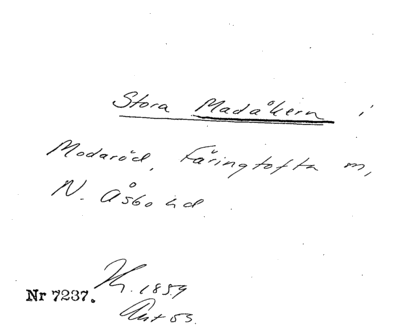 Stora Madåkern i
Modaröd, Färingtofta m,
N. Åsbo hd
Nr 7237. K. 1859
Ant 53.